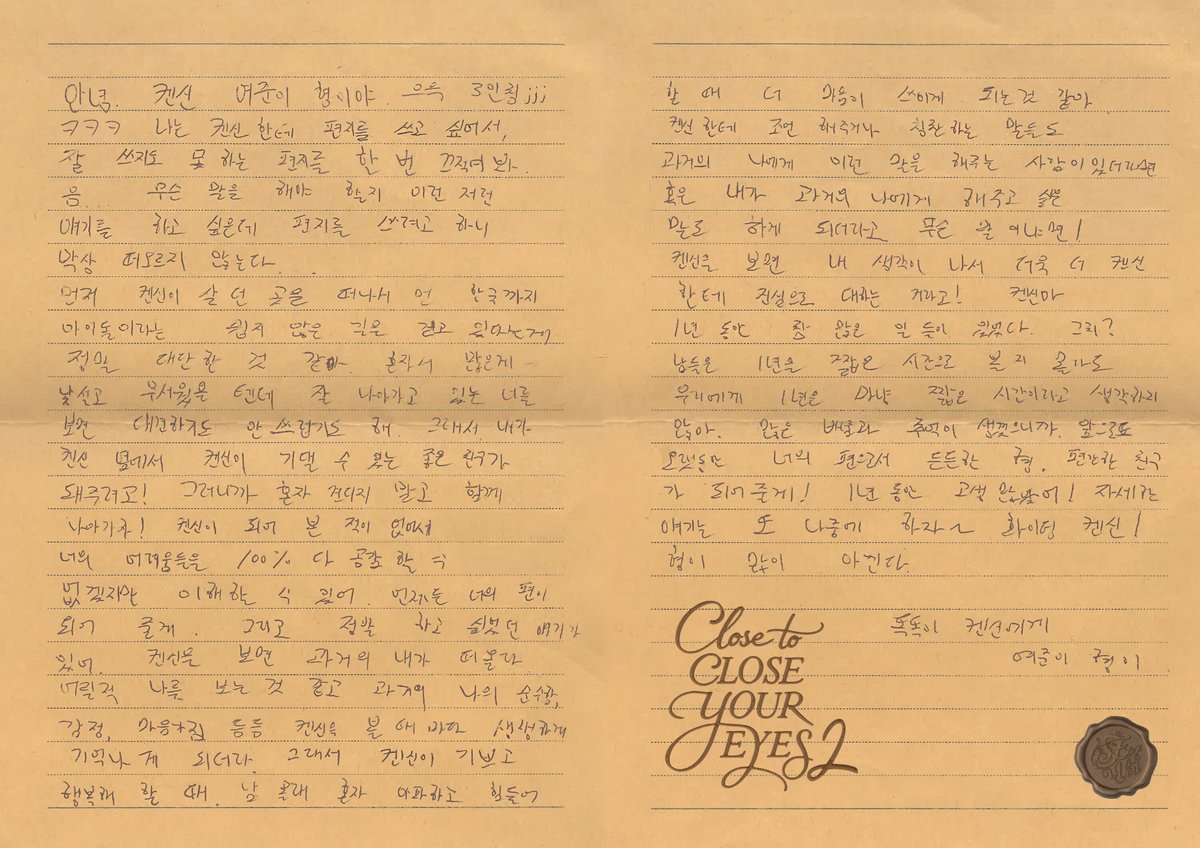 안녕. 켄신 여준이 형이야. 으득 3인칭;;;
ㅋㅋㅋ 나는 켄신한테 편지를 쓰고 싶어서,
잘 쓰지도 못 하는 편지를 한 번 끄적여 봐.
음... 무슨 말을 해야 할지 이런 저런
얘기를 하고 싶은데 편지를 쓰려고 하니
막상 떠오르지 않는다....
먼저 켄신이 살 던 곳을 떠나서 먼 한국까지
아이돌이라는 쉽지 않은 길을 걷고 있다는게,
정말 대단한 것 같아 혼자서 많은게
낯설고 무서웠을 텐데 잘 나아가고 있는 너를
보면 대견하기도 안쓰럽기도 해. 그래서, 내가
켄신 옆에서 켄신이 기댈 수 있는 좋은 친구가
돼주려고! 그러니까 혼자 견디지 말고 함께
나아가자! 켄신이 되어 본 적이 없어서
너의 어려움들을 100% 다 공감 할 순
없겠지만 이해할 순 있어. 언제든 너의 편이
되어 줄게. 그리고 정말 하고 싶었던 얘기가
있어. 켄신을 보면 과거의 내가 떠올라
어릴적 나를 보는 것 같고 과거의 나의 순수함,
감정, 마음가짐 등등 켄신을 볼 때 마다 생생하게
기억나게 되더라. 그래서 켄신이 기쁘고
행복해 할 때, 남 몰래 혼자 아파하고 힘들어
할 때 더 마음이 쓰이게 되는것 같아.
켄신한테 조언 해주거나 칭찬하는 말들도
과거의 나에게 이런 말을 해주는 사람이 있더라면
혹은 내가 과거의 나에게 해주고 싶은
말도 하게 되더라고 무슨 말 이냐면!
켄신을 보면 내 생각이 나서 더욱 더 켄신
한테 진실으로 대하는 거라고! 켄신아
1년 동안 참 많은 일 들이 있었다. 그치?
남들은 1년을 짧은 시간으로 볼 지 몰라도
우리에게 1년은 마냥 짧은 시간이라고 생각하지
않아. 많은 배움과 추억이 생겼으니까. 앞으로도
오랫동안 너의 편으로서 든든한 형, 편안한 친구
가 되어줄게! 1년 동안 고생 많았어! 자세한
얘기는 또 나중에 하자~ 화이팅 켄신!
형이 많이 아낀다.
똑똑이 켄신에게
여준이 형이
Close to
CLOSE
YOUR
EYES 2